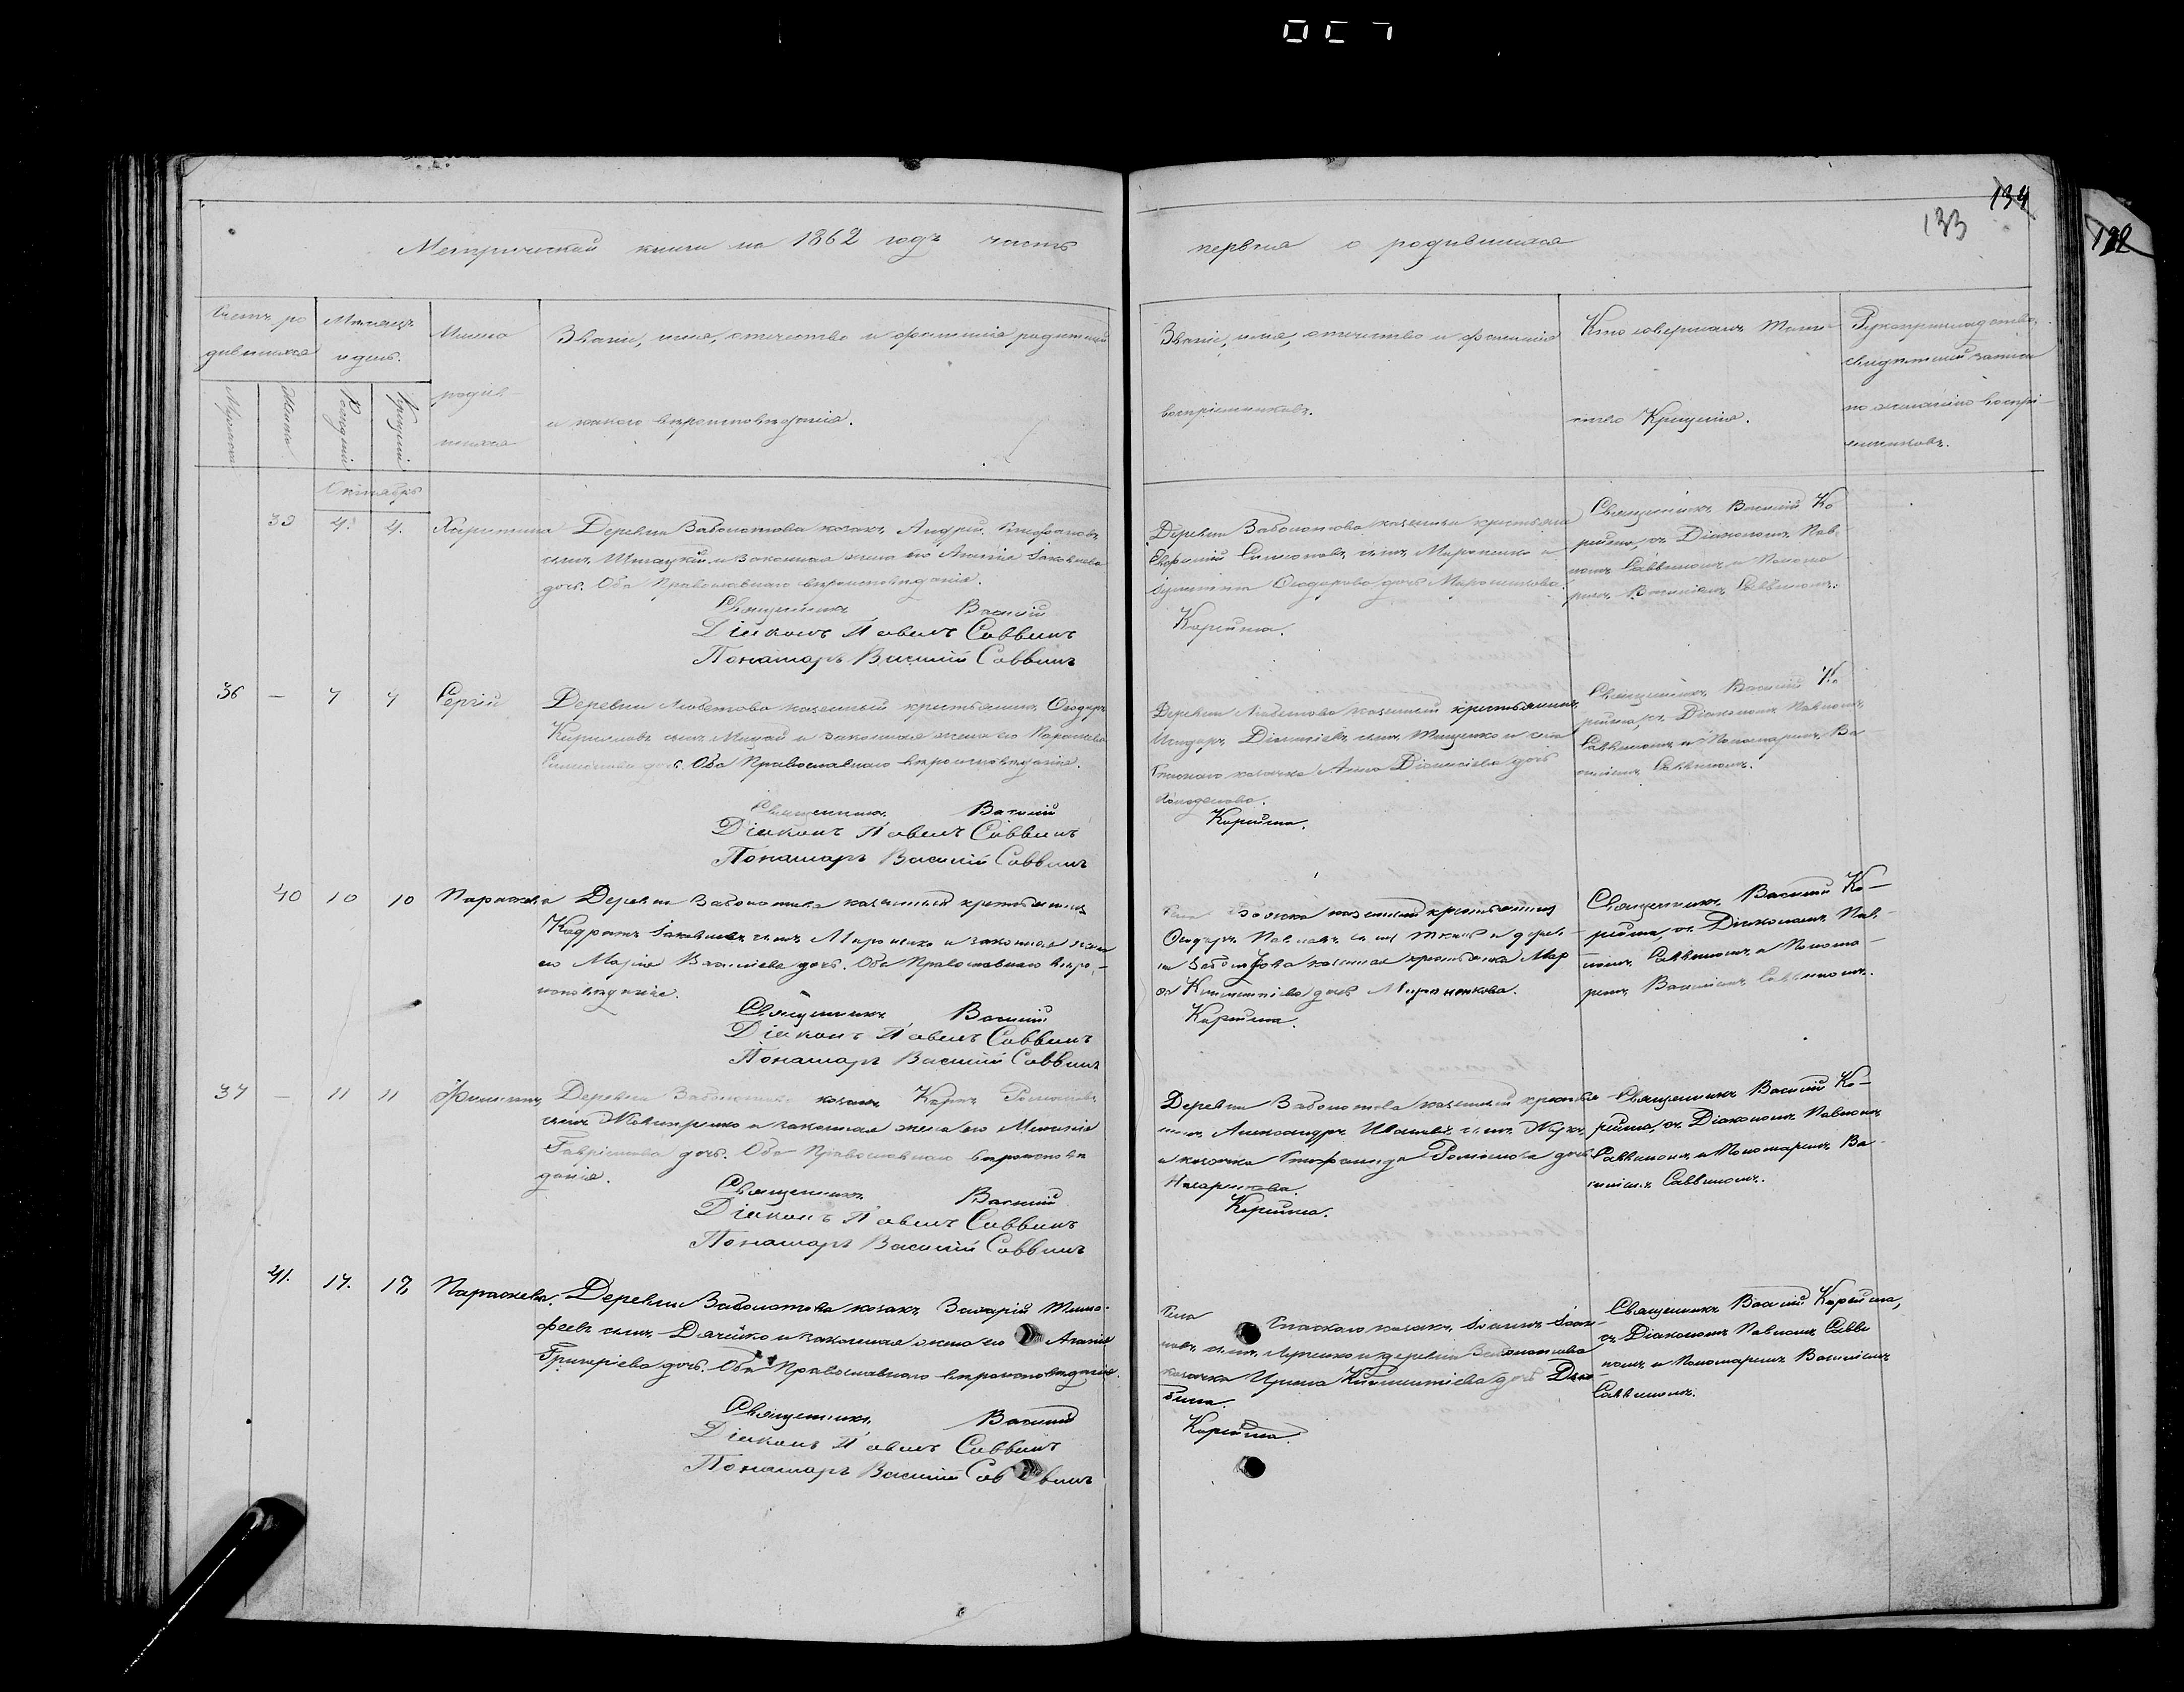 134
133
132
Метрической книги на 1862 годъ часть первая о родившихся
Счетъ ро
дившихся
Мѣсяцъ
и день.
Имена
родив-
шихся
Звание, имя, отчество и фамилія родителей
и какого вѣроисповѣданія.
Мужеска
Женска
Рожденія
Крещенія
Званіе, имя, отчество и фамилія
воспріемниковъ.
Кто совершалъ Таин-
ство Крещенія.
Рукоприкладство
свидѣтелей записи
по желанію воспрі-
емниковъ.
Октябрь
39 4. 4. Харитина Деревни Заболотова козакъ Андрей Стефановъ
сынъ и законная жена его Агапія Іаковлева
дочь. Оба Православнаго вѣроисповѣданія.
Священникъ Василій
Діаконъ Павелъ Саввинъ
Понамарь Василій Саввинъ
Деревни Заболотова
сынъ Мироненко и
Ѳеодорова дочь Мироненкова.
Корейша.
Священникъ Василій Ко
рейша, съ Діакономъ Пав-
ломъ Саввиномъ и Понома
ремъ Василіемъ Саввиномъ.
36 — 7 7 Сергій Деревни Любетова казенный крестьянинъ Ѳеодоръ
Кириловъ сынъ Мицай и законная жена его Параскева
Симеонова дочь. Оба Православнаго вѣроисповѣданія.
Священникъ Василій
Діаконъ Павелъ Саввинъ
Понамарь Василій Саввинъ
Деревни Любетова казенный крестьянинъ
Діонисіевъ сынъ Тищенко и села
Спаского козачка Анна Діонисіева дочь
Корейша.
Священникъ Василій Ко
рейша, съ Діакономъ Павломъ
Саввиномъ и Пономаремъ Ва
силіемъ Саввиномъ.
40 10 10 Параскева Деревни Заболотова казенный крестьянинъ
Кодратъ Іаковлевъ сынъ Мироненко и законная жена
его Марія Василіева дочь. Оба Православнаго вѣро-
исповѣданія.
Священникъ Василій
Діаконъ Павелъ Саввинъ
Понамарь Василій Саввинъ
казенный крестьянинъ
Ѳеодоръ Павловъ сынъ Ткачъ и дерев-
ни Заболотова казенная крестьянка Мар
дочь Мироненкова.
Корейша.
Священникъ Василій Ко-
рейша, съ Діакономъ Пав-
ломъ Саввиномъ и Понома-
ремъ Василіемъ Саввиномъ.
37 — 11 11 Филиппъ Деревни Заболотова козакъ Карпъ Романовъ
сынъ и законная жена его Меланія
Гавріилова дочь. Оба Православнаго вѣроисповѣ
данія.
Священникъ Василій
Діаконъ Павелъ Саввинъ
Понамарь Василій Саввинъ
Деревни Заболотова казенный крестья
нинъ Александръ Ивановъ сынъ
и козачка Стефанида Романова дочь
Корейша.
Священникъ Василій Ко-
рейша, съ Діакономъ Павломъ
Саввиномъ и Пономаремъ Ва-
силіемъ Саввиномъ.
41. 17. 17 Параскева. Деревни Заболотова козакъ Захарій Тимо-
феевъ сынъ Дячейко и законная жена его Агапія
Григоріева дочь. Оба Православнаго вѣроисповѣданія.
Священникъ Василій
Діаконъ Павелъ Саввинъ
Понамарь Василій Саввинъ
Села Спаского козакъ Іоаннъ Іоан-
новъ сынъ Луценко и деревни Заболотова
козачка Ирина Климентіева дочь
Корейша.
Священникъ Василій Корейша,
съ Діакономъ Павломъ Савви
номъ и Пономаремъ Василіемъ
Саввиномъ.